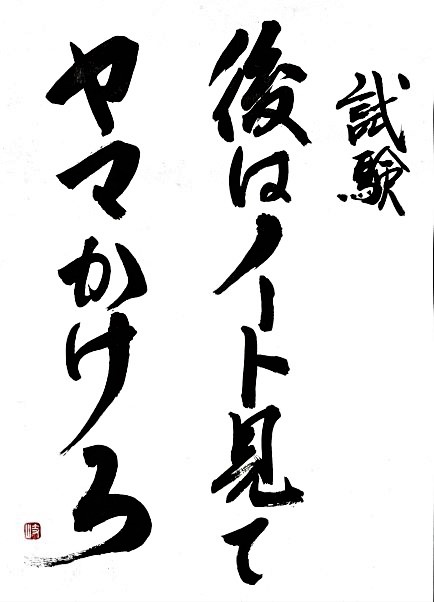 試験
後はノート見て
ヤマかけろ